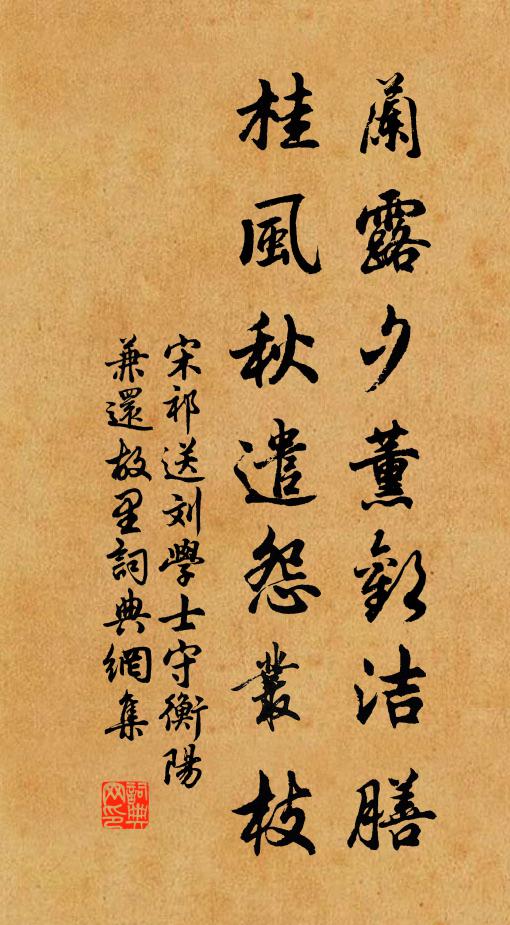 蘭露夕薰歡洁膳
桂風秋遣怨叢枝
宋祁送刘學士守衡陽
兼還故里詞典網集
詞典
网印